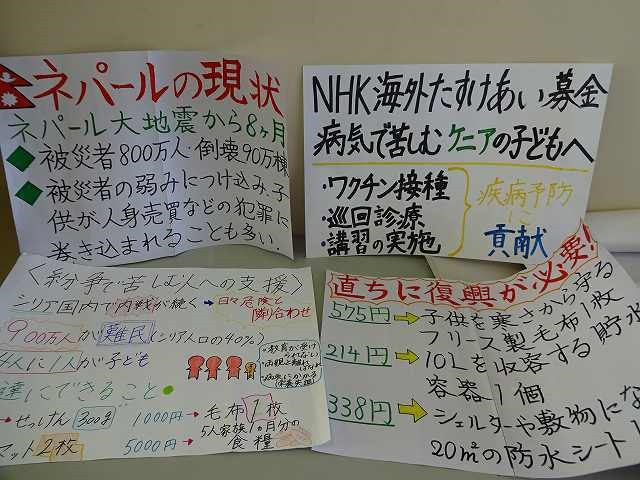 ネパールの現状
ネパール大地震から8ヶ月
被災者800万人・倒壊90万棟
被災者の弱みにつけ込み、子
供が人身売買などの犯罪に
巻き込まれることも多い
NHK海外たすけあい募金
病気で苦しむケニアの子どもへ
・ワクチン接種
・巡回診療
・講習の実施
疾病予防
に
貢献
〈紛争で苦しむ人への支援〉
シリア国内で内戦が続く→日々危険と
隣り合わせ
900万人が難民(シリア人口の40%)
4人に1人が子ども
・教育が受け
られない
・病気にかかる
達にできること
せっけん300g 1000円→毛布1枚
マット2枚 5000円→5人家族1ヵ月分の
食糧
直ちに復興が必要!
575円→子供を寒さから守る
フリース製毛布1枚
214円→10Lを収容する貯水
容器1個
338円→シェルターや敷物にな
20㎡の防水シート1